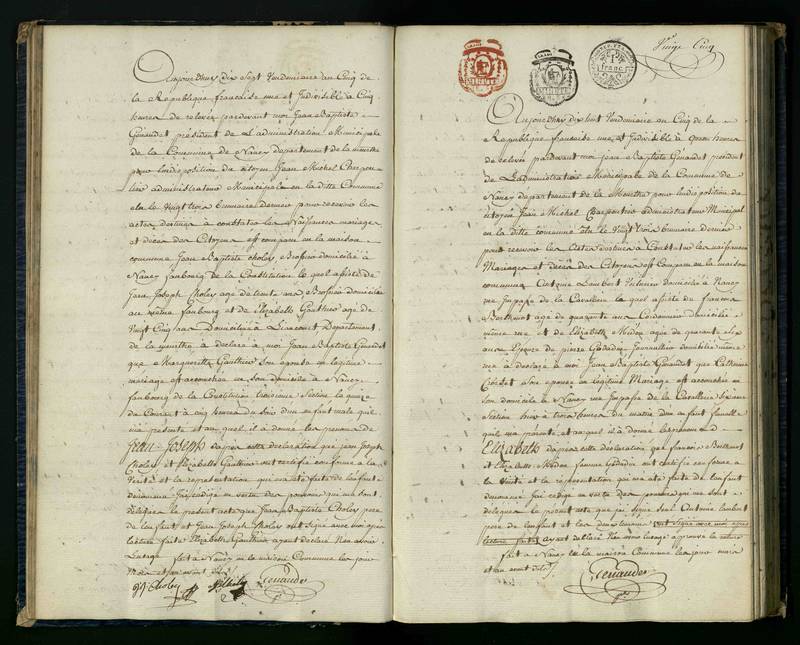 Aujourdhuy dix Sept Vendemiaire an Cinq de
la Republique francaise une et Indivisible à Cinq
heures de relevée pardevant moi Jean Baptiste
Géraudet président de L'administration Municipale
de la Commune de Nancy departement de la meurthe
pour lindisposition du citoyen Jean Michel Charpen
tier administrateur Municipale en la ditte Commune
elu le Vingt trois brumaire dernier pour recevoir les
actes destinés à constater les Naissances mariages
et décès des Citoyens est comparu en la maison
commune Jean Baptiste Choley Brossier domicilié à
Nancy faubourg de la Constitution le quel assisté de
Jean Joseph Choley agé de trente ans Brossier domicilié
au même faubourg et de Elizabeth Gauthier agée de
Vingt Cinq ans Domiciliée à Departement
de la meurthe à déclaré à moi Jean Baptiste Géraudet
que Marguerite Gauthier Son épouse en légitime
mariage est accouchée en son domicile à Nancy
faubourg de la Constitution Section le quinze
du Courant à cinq heures du Soir d'un enfant male quil
ma présenté et au quel il à donné les prenoms de
Jean Joseph dapres cette déclaration que jean Joseph
Choley et Elizabeth Gauthier ont certifié conforme a la
Verité et la représentation qui ma été faite de l'enfant
denommé j'ai rédigé en vertu des pouvoirs qui me sont
délégués le présent acte que Jean Baptiste Choley pere
de l'enfant et Jean Joseph Choley ont Signé avec moi après
lecture faite Elizabeth Gauthier ayant declaré Non avoir
L'usage fait a Nancy en la maison Commune les jour
Mois et an avant dits
Choley
Géraudet
MINUTE
MINUTE
1 franc
Vingt Cinq
Aujourdhuy dix huit Vendemiaire an Cinq de la
Republique francaise une et Indivisible à onze heures
de relevée pardevant moi Jean Baptiste Géraudet président
de L'administration Municipale de la Commune de
Nancy departement de la Meurthe pour lindisposition du
citoyen Jean Michel Charpentier administrateur Municipal
en la ditte commune elu le Vingt Trois brumaire dernier
pour recevoir les Actes destinés à Constater les naissances
Mariages et décès des Citoyens est Comparu en la maison
commune Antoine Lambert domicilié à Nancy
rue de la Cavallerie le quel assisté de francois
Berthmot agé de quarante ans Cordonnier domicilié
même rue et de Elizabeth agée de quarante Six
ans Epouse de pierre Journallier domiciliée même
rue à declaré a moi Jean Baptiste Géraudet que Catherine
Son épouse en légitime Mariage est accouchée en
Son domicile à Nancy rue de la Cavallerie Sixieme
Section hier à trois heures du matin d'un enfant femelle
quil ma présenté et au quel il à donné le prenom d
Elizabeth dapres cette déclaration que francois Berthmot
et Elizabeth femme ont certifié conforme a
la Verité et la représentation qui ma été faite de l'enfant
denommé j'ai redigé en vertu des pouvoirs qui me sont
delegués le présent acte que j'ai signé Seul Antoine Lambert
pere de lenfant et les deux temoins ont Signé avec moi après
lecture faite ayant declaré Non avoir L'usage approuvé la rature
fait à Nancy en la maison Commune les jour mois
et an avant dits
Géraudet